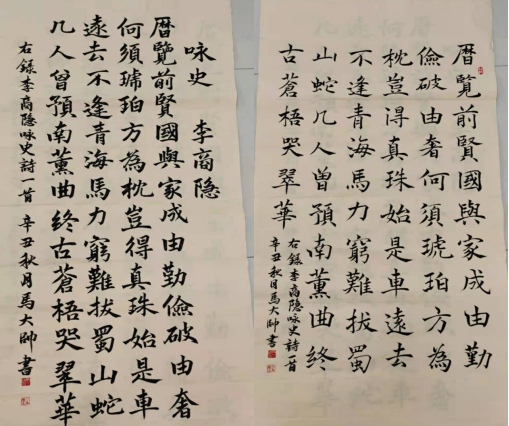 咏史 李商隐
曆覽前賢國與家成由勤儉破由奢
何須琥珀方為枕豈得真珠始是車
遠去不逢青海馬力窮難拔蜀山蛇
几人曾預南薰曲終古蒼梧哭翠華
右錄李商隐咏史詩一首 辛丑秋月馬大帥書
曆覽前賢國與家成由勤
儉破由奢何須琥珀方為
枕豈得真珠始是車遠去
不逢青海馬力窮難拔蜀
山蛇几人曾預南薰曲終
古蒼梧哭翠華
右錄李商隐咏史詩一首
辛丑秋月馬大帥書